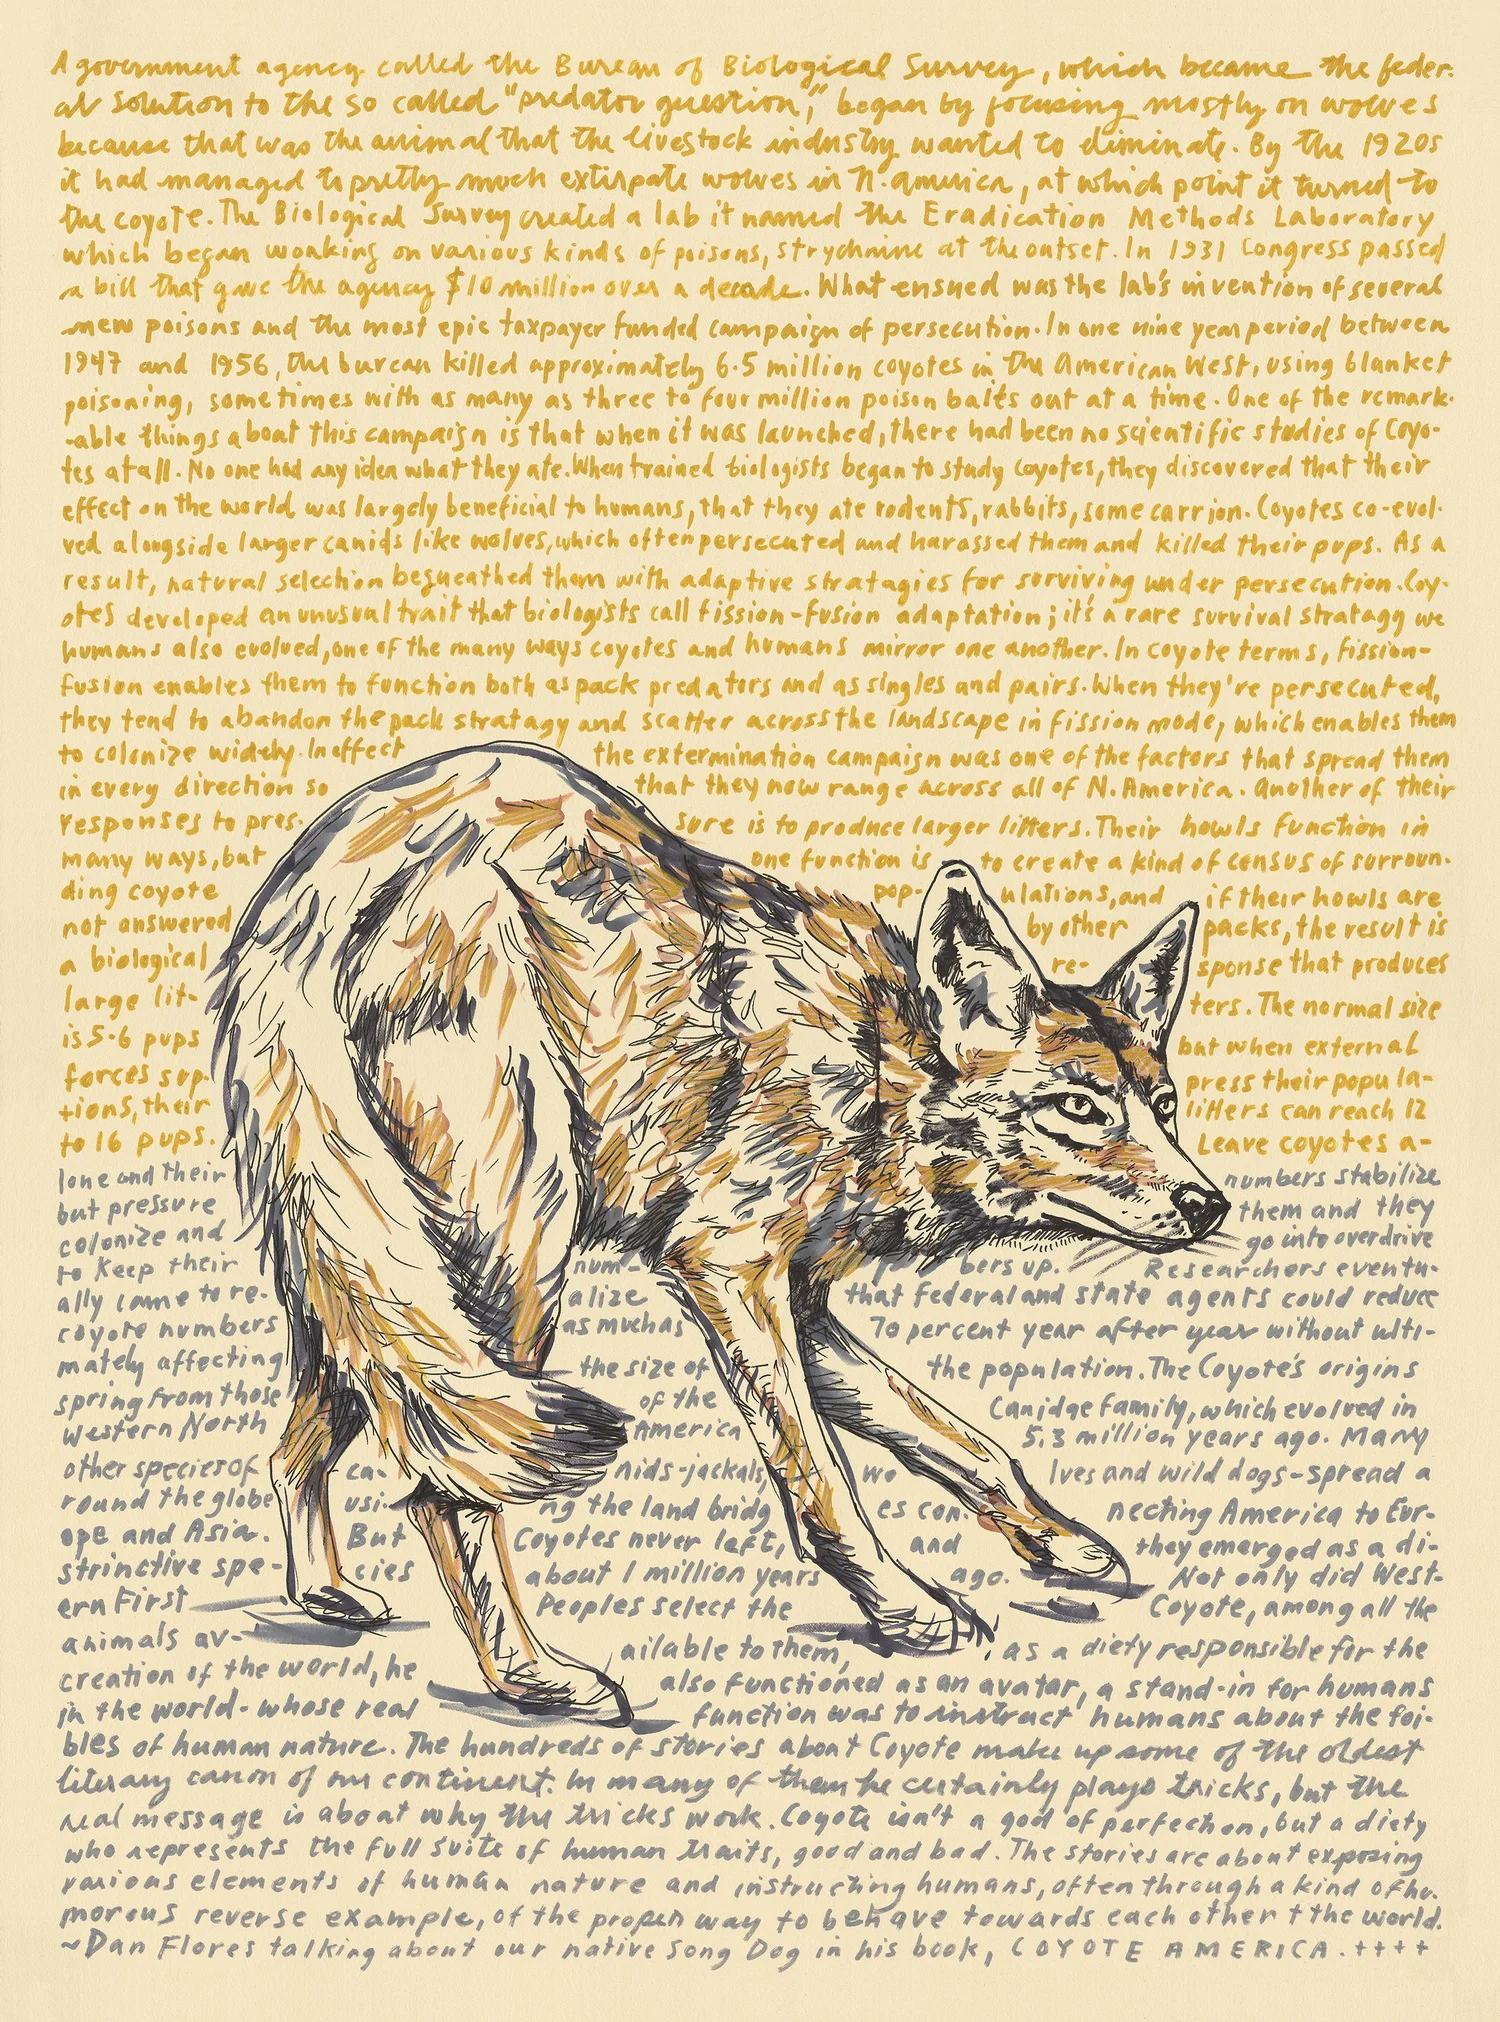 A government agency called the Bureau of Biological Survey, which became the feder-
al solution to the so called "predator question," began by focusing mostly on wolves
because that was the animal that the livestock industry wanted to eliminate. By the 1920s
it had managed to pretty much extirpate wolves in N. america, at which point it turned to
the coyote. The Biological Survey created a lab it named the Eradication Methods Laboratory
which began working on various kinds of poisons, strychnine at the outset. In 1931 Congress passed
a bill that gave the agency $10 million over a decade. What ensued was the lab's invention of several
new poisons and the most epic taxpayer funded campaign of persecution. In one nine year period between
1947 and 1956, the bureau killed approximately 6.5 million coyotes in the American West, using blanket
poisoning, sometimes with as many as three to four million poison baits out at a time. One of the remark-
-able things about this campaign is that when it was launched, there had been no scientific studies of Coyo-
tes at all. No one had any idea what they ate. When trained biologists began to study coyotes, they discovered that their
effect on the world was largely beneficial to humans, that they ate rodents, rabbits, some carrion. Coyotes co-evol-
ved alongside larger canids like wolves, which often persecuted and harassed them and killed their pups. As a
result, natural selection bequeathed them with adaptive stratagies for surviving under persecution. Coy-
otes developed an unusual trait that biologists call fission-fusion adaptation; it's a rare survival stratagy we
humans also evolved, one of the many ways coyotes and humans mirror one another. In coyote terms, fission-
fusion enables them to function both as pack predators and as singles and pairs. When they're persecuted,
they tend to abandon the pack stratagy and scatter across the landscape in fission mode, which enables them
to colonize widely. In effect the extermination campaign was one of the factors that spread them
in every direction so that they now range across all of N. America. Another of their
responses to pres- sure is to produce larger litters. Their howls function in
many ways, but one function is to create a kind of census of surroun-
ding coyote pop- ulations, and if their howls are
not answered by other packs, the result is
a biological re- sponse that produces
large lit- ters. The normal size
is 5-6 pups but when external
forces sup- press their popula-
tions, their litters can reach 12
to 16 pups. Leave coyotes a-
lone and their numbers stabilize
but pressure them and they
colonize and go into overdrive
to keep their num- bers up. Researchers eventu-
ally came to re- alize that federal and state agents could reduce
coyote numbers as much as 70 percent year after year without ulti-
mately affecting the size of the population. The Coyote's origins
spring from those of the Canidae family, which evolved in
Western North America 5.3 million years ago. Many
other species of ca- nids-jackals, wo lves and wild dogs-spread a
round the globe usi- ng the land bridg es con- necting America to Eur-
ope and Asia. But Coyotes never left, and they emerged as a di-
strinctive spe- cies about 1 million years ago. Not only did West-
ern First Peoples select the Coyote, among all the
animals av- ailable to them, as a diety responsible for the
creation of the world, he also functioned as an avatar, a stand-in for humans
in the world-whose real function was to instruct humans about the foi-
bles of human nature. The hundreds of stories about Coyote make up some of the oldest
literary canon of our continent. In many of them he certainly plays tricks, but the
real message is about why the tricks work. Coyote isn't a god of perfection, but a diety
who represents the full suite of human traits, good and bad. The stories are about exposing
various elements of human nature and instructing humans, often through a kind of hu-
morous reverse example, of the proper way to behave towards each other + the world.
~Dan Flores talking about our native Song Dog in his book, COYOTE AMERICA.++++